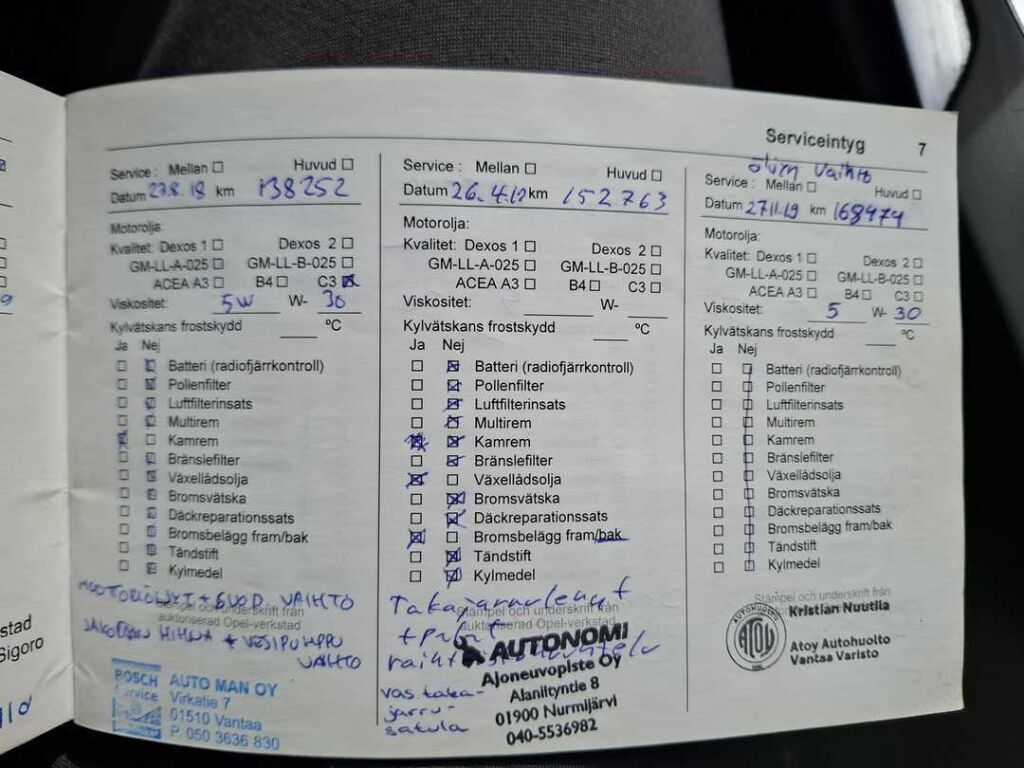 Serviceintyg 7
Service : Mellan Huvud
Datum 27.8.18 km 138252
Motorolja:
Kvalitet: Dexos 1 Dexos 2
GM-LL-A-025 GM-LL-B-025
ACEA A3 B4 C3
Viskositet: 5W W- 30
Kylvätskans frostskydd °C
Ja Nej
Batteri (radiofjärrkontroll)
Pollenfilter
Luftfilterinsats
Multirem
Kamrem
Bränslefilter
Växellådsolja
Bromsvätska
Däckreparationssats
Bromsbelägg fram/bak
Tändstift
Kylmedel
MOOTTORIÖLJYT + SUOD. VAIHTO
Stämpel och underskrift från
auktoriserad Opel-verkstad
JAKOPÄÄN HIHNA + VESIPUMPPU
VAIHTO
BOSCH
Service
AUTO MAN OY
Virkatie 7
01510 Vantaa
P. 050 3636 830
Service : Mellan Huvud
Datum 26.4.19 km 152763
Motorolja:
Kvalitet: Dexos 1 Dexos 2
GM-LL-A-025 GM-LL-B-025
ACEA A3 B4 C3
Viskositet: W-
Kylvätskans frostskydd °C
Ja Nej
Batteri (radiofjärrkontroll)
Pollenfilter
Luftfilterinsats
Multirem
Kamrem
Bränslefilter
Växellådsolja
Bromsvätska
Däckreparationssats
Bromsbelägg fram/bak
Tändstift
Kylmedel
Takajarrulevyt
Stämpel och underskrift från
auktoriserad Opel-verkstad
+ palat
vas. taka-
jarru-
satula
AUTONOMI
Ajoneuvopiste Oy
Alaniityntie 8
01900 Nurmijärvi
040-5536982
öljyn vaihto
Service : Mellan Huvud
Datum 27.11.19 km 168474
Motorolja:
Kvalitet: Dexos 1 Dexos 2
GM-LL-A-025 GM-LL-B-025
ACEA A3 B4 C3
Viskositet: 5 W- 30
Kylvätskans frostskydd °C
Ja Nej
Batteri (radiofjärrkontroll)
Pollenfilter
Luftfilterinsats
Multirem
Kamrem
Bränslefilter
Växellådsolja
Bromsvätska
Däckreparationssats
Bromsbelägg fram/bak
Tändstift
Kylmedel
Stämpel och underskrift från
Kristian Nuutila
AUTOHUOLTO
ATOY
Atoy Autohuolto
Vantaa Varisto
stad
Sigoro